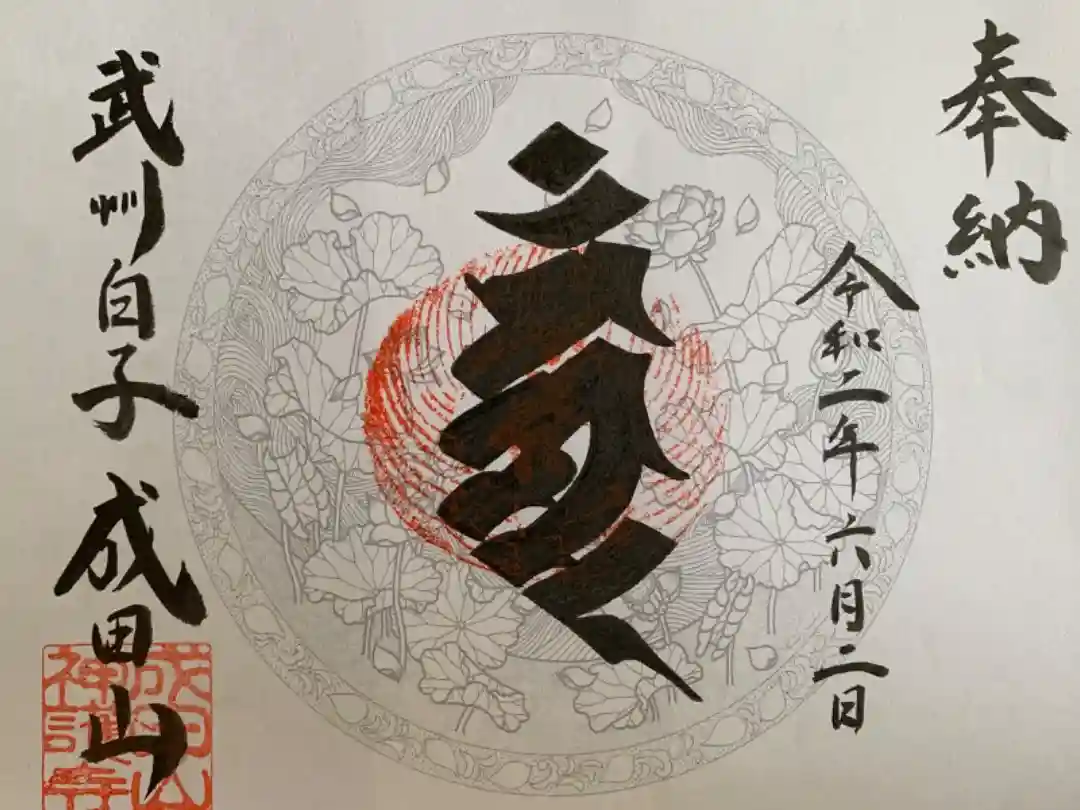 奉納
令和二年六月二日
武州白子 成田山
成田山
神護寺